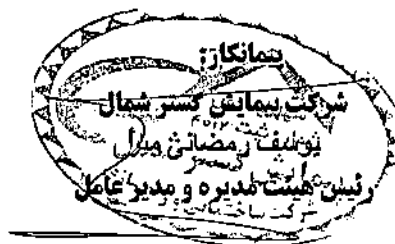 پیمانکار:
شرکت پیمایش گستر شمال
یوسف رمضانی
رئیس هیئت مدیره و مدیر عامل
شرکت